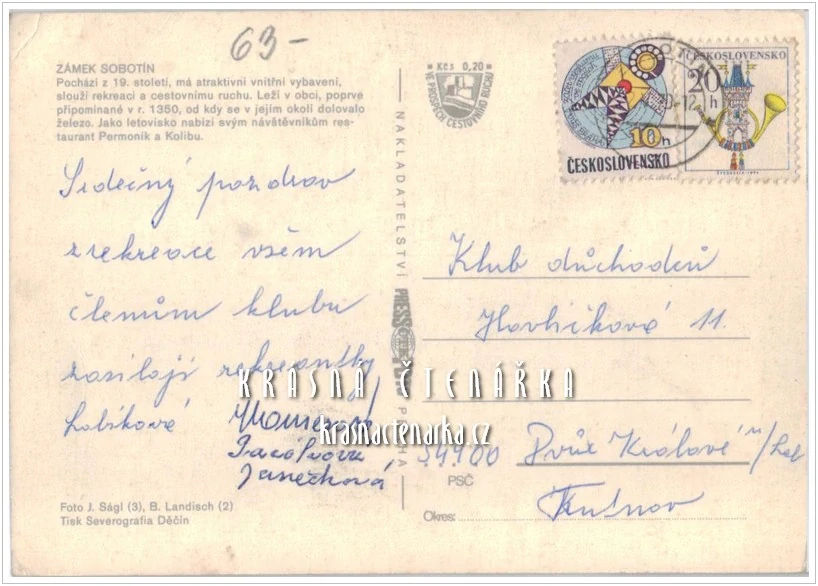 63-
ZÁMEK SOBOTÍN
Pochází z 19. století, má atraktivní vnitřní vybavení,
slouží rekreaci a cestovnímu ruchu. Leží v obci, poprvé
připomínané v r. 1350, od kdy se v jejím okolí dolovalo
železo. Jako letovisko nabízí svým návštěvníkům res-
taurant Permoník a Kolibu.
Srdečný pozdrav
z rekreace všem
členům klubu
zasílají rekreantky
Janečková
Foto J. Ságl (3), B. Landisch (2)
Tisk Severografia Děčín
NAKLADATELSTVÍ PRESSFOTO PRAHA
Kčs 0,20
VE PROSPĚCH CESTOVNÍHO RUCHU
10h
ČESKOSLOVENSKO
ČESKOSLOVENSKO
20h
Klub důchodců
Havlíčkova 11.
54400 Dvůr Králové n/Lab
PSČ
Okres: Trutnov
KRÁSNÁ ČTENÁŘKA
krasnactenarka.cz